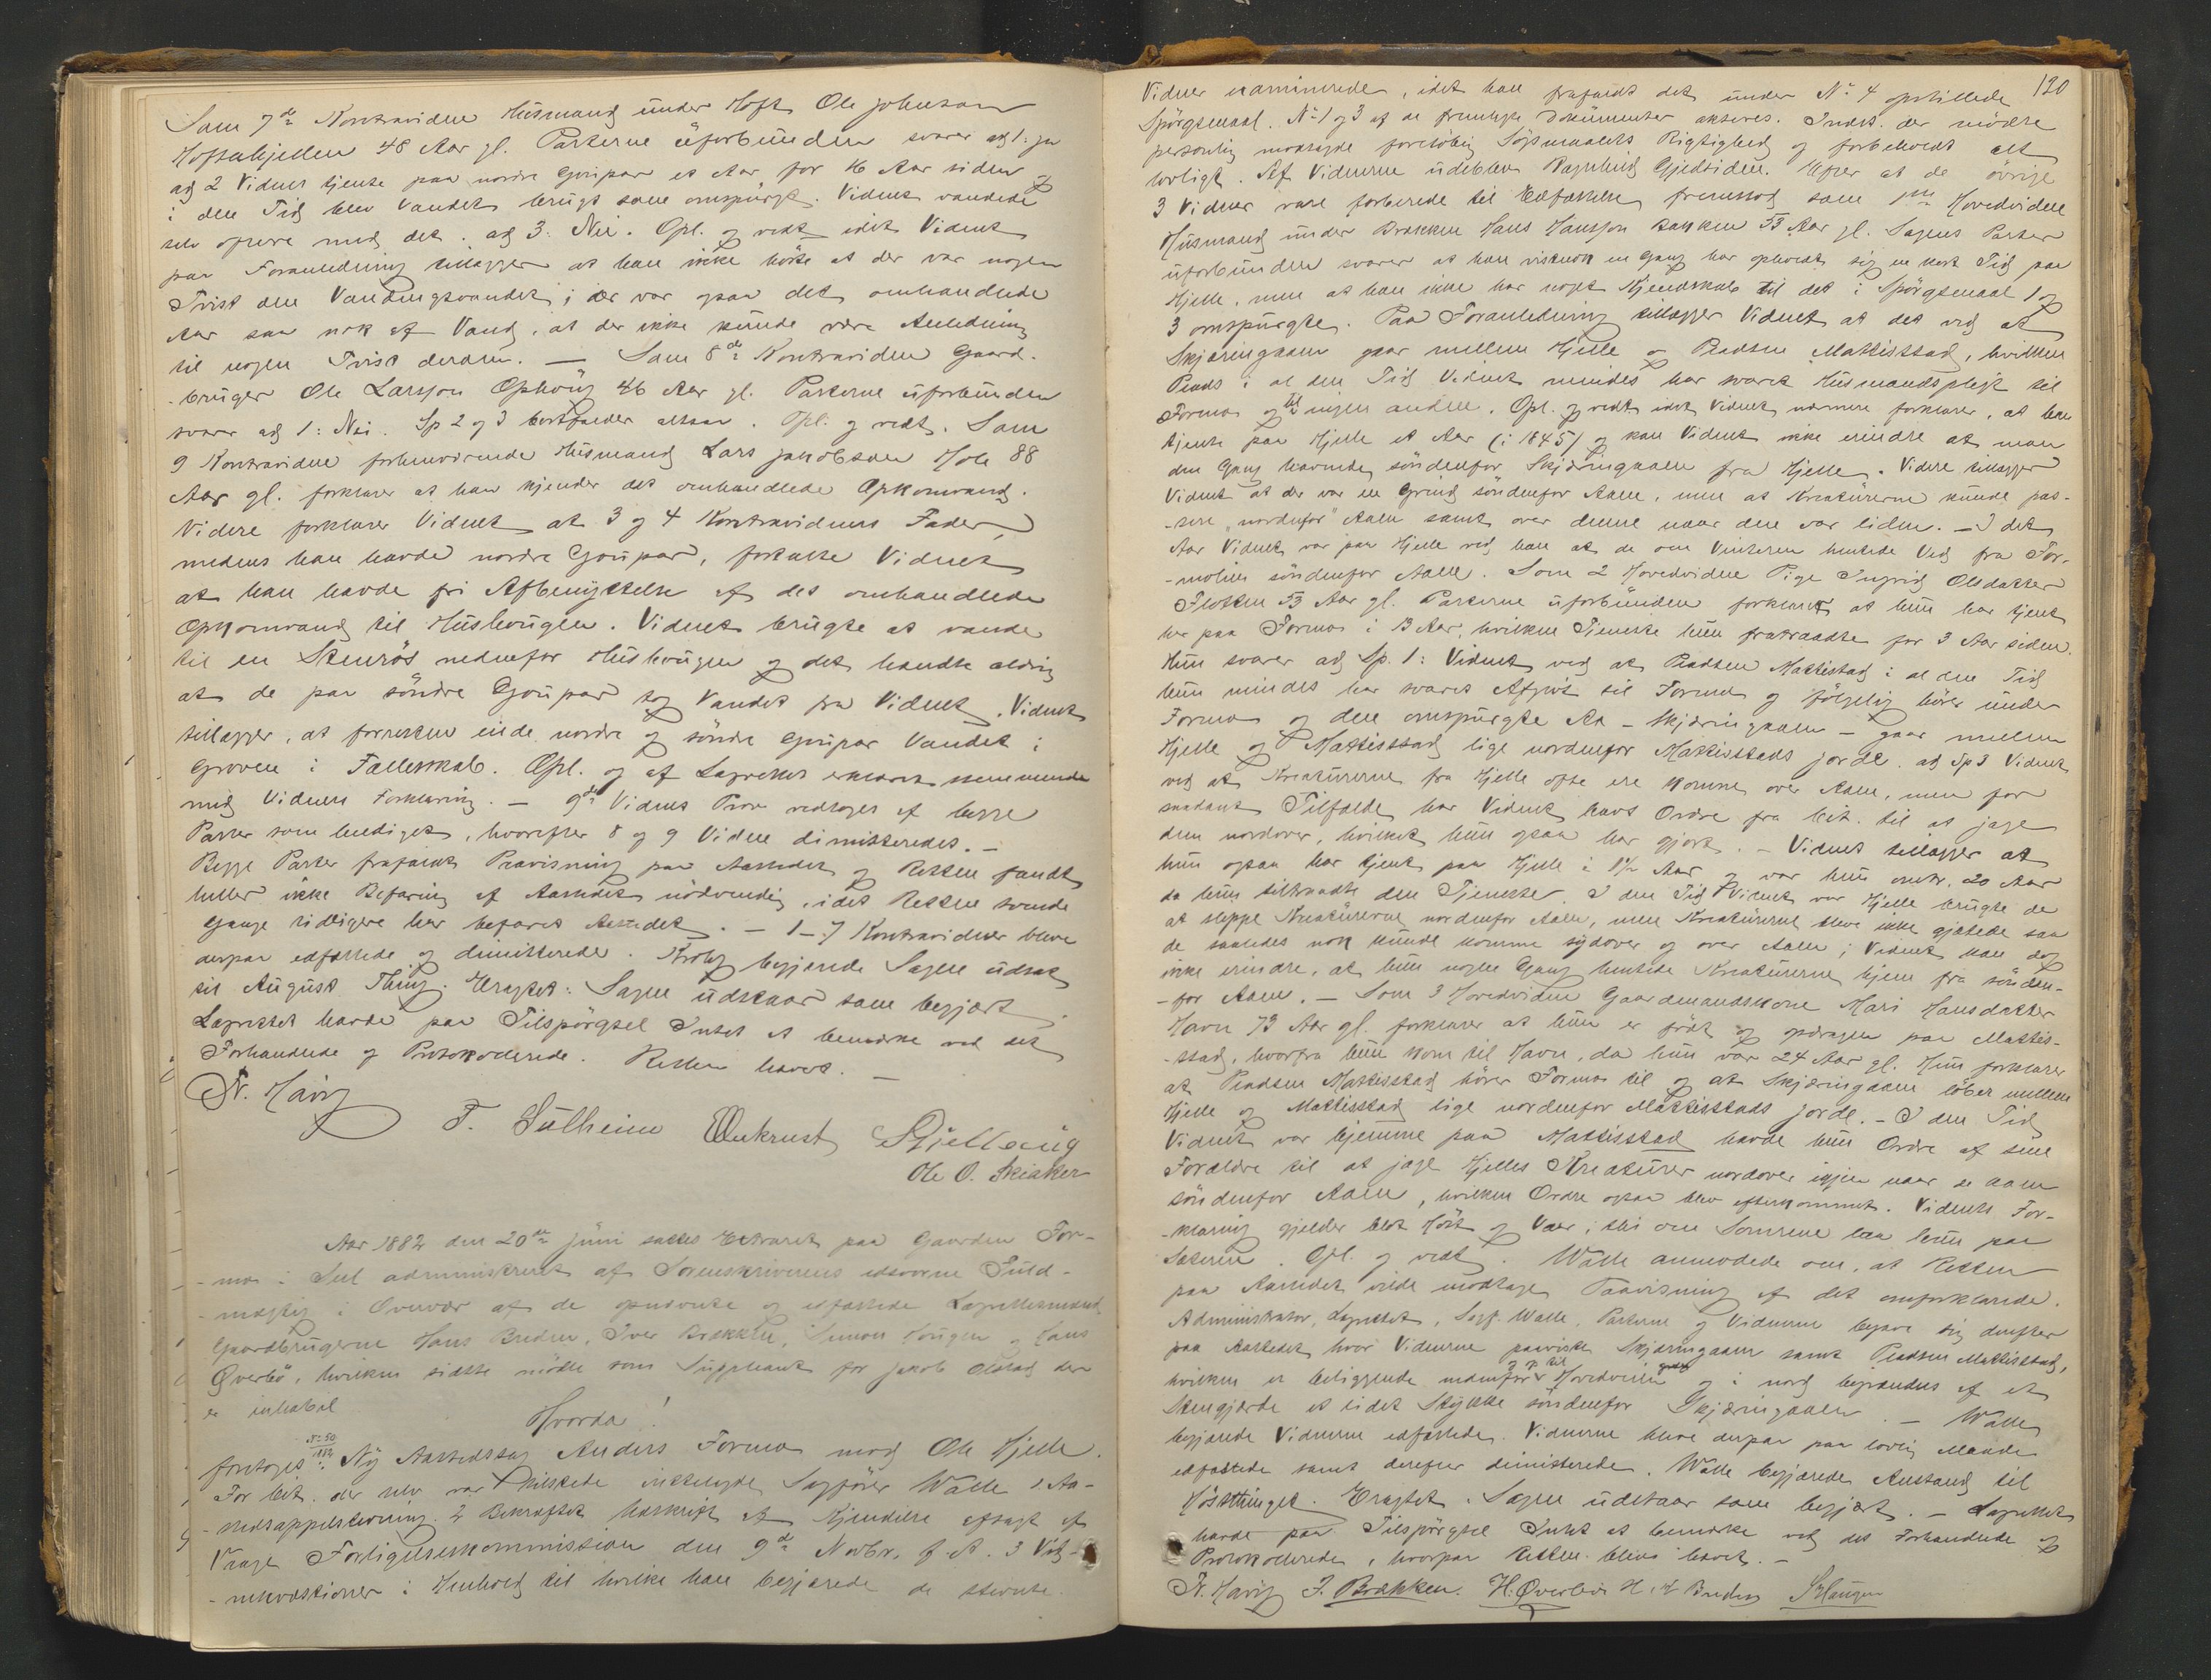 Som 7de Kontravidne Husmand under Hoft Ole Johnsen
Hoftekjellen 48 Aar gl. Parterne uforbunden svarer ad 1: ja
ad 2 Vidnet tjente paa nordre Goupar et Aar for 16 Aar siden og
i den Tid blev Vandet brugt som omspurgt. Vidnet vandede
selv opover med det. ad 3: Nei. Opl. og vedt. idet Vidnet
paa Foranledning tillægger at han ikke hørte at der var nogen
Tvist om Vandingsvandet; der var ogsaa det omhandlede
Aar saa nok af Vand, at der ikke kunde være Anledning
til nogen Tvist derom. — Som 8de Kontravidne Gaard-
-bruger Ole Larssen Ophoug 46 Aar gl. Parterne uforbunden
svarer ad 1: Nei. Sp 2 og 3 bortfalder altsaa. Opl. og vedt. Som
9 Kontravidne forhenværende Husmand Lars Jakobsen Hole 88
Aar gl. forklarer at han kjender det omhandlede Opkomvand.
Videre forklarer Vidnet at 3 og 4 Kontravidners Fader,
medens han havde nordre Goupar, fortalte Vidnet
at han havde fri Afbenyttelse af det omhandlede
Opkomvand til Hushougen. Vidnet brugte at vande
til en Stenrøs nedenfor Hushougen og det hændte aldrig
at de paa søndre Goupar tog Vandet fra Vidnet. Vidnet
tillægger, at forresten eiede nordre og søndre Goupar Vandet i
Grøven i Fælleskab. Opl. og af Lagretten erklæret stemmende
med Vidnets Forklaring. — 9de Vidnes Prov vedtoges af begge
Parter som beediget, hvorefter 8 og 9 Vidne dimitteredes. —
Begge Parter frafaldt Paavisning paa Aastedet og Retten fandt
heller ikke Befaring af Aastedet nødvendig, idet Retten svende
Gange tidligere har befaret Aastedet. — 1–7 Kontravidner bleve
derpaa edfæstede og dimitterede. Krøtz begjærede Sagen udsat
til August Thing. Eragtet: Sagen udstaar som begjært.
Lagrettet havde paa Tilspørgsel Intet at bemærke ved det
Forhandlede og Protokollerede. Retten hævet. —
Fr. Haug
T. Sulheim Aukrust Stjellaug
Ole O. Skiaker
Aar 1882 den 20de Juni sattes Extraret paa Gaarden For-
-mo i Sel administreret af Sorenskriverens edsvorne Fuld-
-mægtig i Overvær af de opnævnte og edfæstede Lagrettesmænd
Gaardbrugerne Hans Breden, Iver Brækken, Simon Hougen og Hans
Øverbø, hvilken sidste mødte som Suppleant for Jakob Olstad der
er inhabil
Hvorda!
No 50/1882
foretoges: Ny Aastedssag Anders Formo mod Ole Hjelle.
For Cit. der selv var tilstede indleverede Sagfører Walle 1. Aa-
-stedsappelstevning. 2 Bekræftet Udskrift af Kjendelse afsagt af
Vaage Forligelseskommission den 9de Novbr. f. A. 3 Vid-
-nekvæstioner i Henhold til hvilke han begjærede de stevnte
120
Vidner examinerede, idet han frafaldt det under No 4 opstillede
Spørgsmaal. No 1 og 3 af de fremlagte Dokumenter aktores. Indst. der mødte
personlig modsagde foreløbig Søgsmaalets Rigtighed og forbeholdt alt
lovligt. Af Vidnerne udeblev Ragnhild Gjedtiden. Efter at de øvrige
3 Vidner vare forberede til Edfæstelse fremstod som 1ste Hovedvidne
Husmand under Brækken Hans Hanssen Bakken 53 Aar gl. Sagens Parter
uforbunden svarer at han vistnok en Gang har opholdt sig en kort Tid paa
Hjelle, men at han ikke har noget Kjendskab til det i Spørgsmaal 1 og
3 omspurgte. Paa Foranledning tillægger Vidnet at det ved at
Skjæringaaen gaar mellem Hjelle og Pladsen Mattisstad, hvilken
Plads i al den Tid Vidnet mindes har svaret Husmandspligt til
Formo og til ingen anden. Opl. og vedt. idet Vidnet nærmere forklarer, at han
tjente paa Hjelle et Aar (i 1845) og kan Vidnet ikke erindre at man
den Gang havnede søndenfor Skjæringaaen fra Hjelle. Videre tillægger
Vidnet at der var en Grind søndenfor Aaen, men at Kreaturerne kunde pas-
-sere "nordenfor" Aaen samt over denne naar den var liden. — I det
Aar Vidnet var paa Hjelle ved han at de om Vinteren hentede Ved fra For-
-molien søndenfor Aaen. Som 2 Hovedvidne Pige Ingrid Olsdatter
Flotten 53 Aar gl. Parterne uforbunden forklarer at hun har tjent
her paa Formo i 13 Aar, hvilken Tjeneste hun fratraadte for 3 Aar siden.
Hun svarer ad Sp. 1: Vidnet ved at Pladsen Mattistad i al den Tid
hun mindes har svaret Afgivt til Formo og følgelig hører under
Formo og den omspurgte Aa – Skjæringaaen – gaar mellem
Hjelle og Mattisstad lige nordenfor Mattisstads Jorde. ad Sp 3 Vidnet
ved at Kreaturerne fra Hjelle ofte ere komne over Aaen, men for
saadant Tilfælde har Vidnet havt Ordre fra Cit. til at jage
dem nordover, hvilket hun ogsaa har gjort. — Vidnet tillægger at
hun ogsaa har tjent paa Hjelle i 1½ Aar og var hun omtr. 20 Aar
da hun tiltraadte den Tjeneste. I den Tid Vidnet var Hjelle brugte de
at sleppe Kreaturerne nordenfor Aaen, men Kreaturerne bleve ikke gjætede saa
de saaledes nok kunde komme sydover og over Aaen; Vidnet kan dog
ikke erindre, at hun nogen Gang hentede Kreaturerne hjem fra sønden-
-for Aaen. — Som 3 Hovedvidne Gaardmandskone Mari Hansdatter
Havn 73 Aar gl. forklarer at hun er født og opdragen paa Mattis-
-stad, hvorfra hun kom til Havn, da hun var 24 Aar gl. Hun forklarer
at Pladsen Mattisstad hører Formo til og at Skjæringaaen løber mellem
Hjelle og Mattisstad lige nordenfor Mattisstads Jorde. — I den Tid
Vidnet var hjemme paa Mattisstad havde hun Ordre af sine
Forældre til at jage Hjelles Kreaturer nordover igjen naar de kom
søndenfor Aaen, hvilken Ordre ogsaa blev efterkommet. Vidnets For-
-klaring gjelder blot Høst og Vaar, thi om Sommeren laa hun paa
Sæteren. Opl. og vedt. Walle anmodede om, at Retten
paa Aastedet vilde modtage Paavisning af det omforklarede.
Administrator, Lagrettet, Sagf. Walle, Parterne og Vidnerne begave sig derefter
paa Aastedet hvor Vidnerne paaviste Skjæringaaen samt Pladsen Mattisstad,
hvilken er beliggende nedenfor og op til Hovedveien og i nord begrændses af et
Stengjærde et lidet Stykke søndenfor Skjæringaaen. — Walle
begjærede Vidnerne edfæstede. Vidnerne bleve derpaa paa lovlig Maade
edfæstede samt derefter dimitterede. Walle begjærede Anstand til
Høstthinget. Eragtet. Sagen udstaar som begjært. — Lagrettet
havde paa Tilspørgsel Intet at bemærke ved det Forhandlede og
Protokollerede, hvorpaa Retten blev hævet. —
Fr. Haug I. Brækken. H. Øverbø H. H. Breden S Haugen